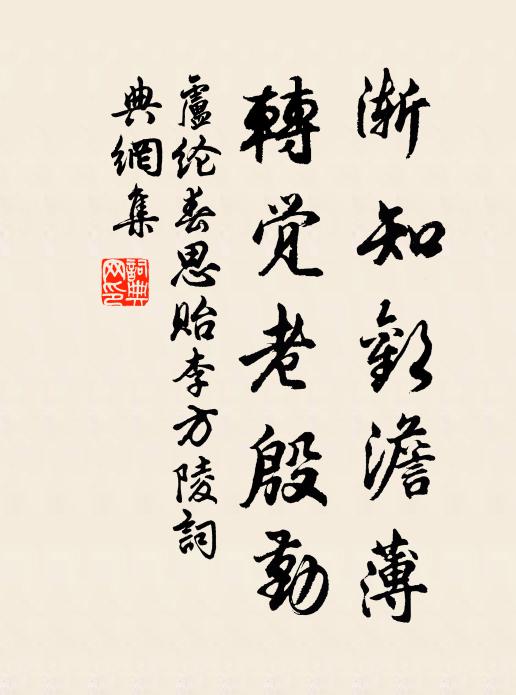 漸知歡澹薄
轉覺老殷勤
盧綸春思貽李方陵詞
典網集
詞典网印